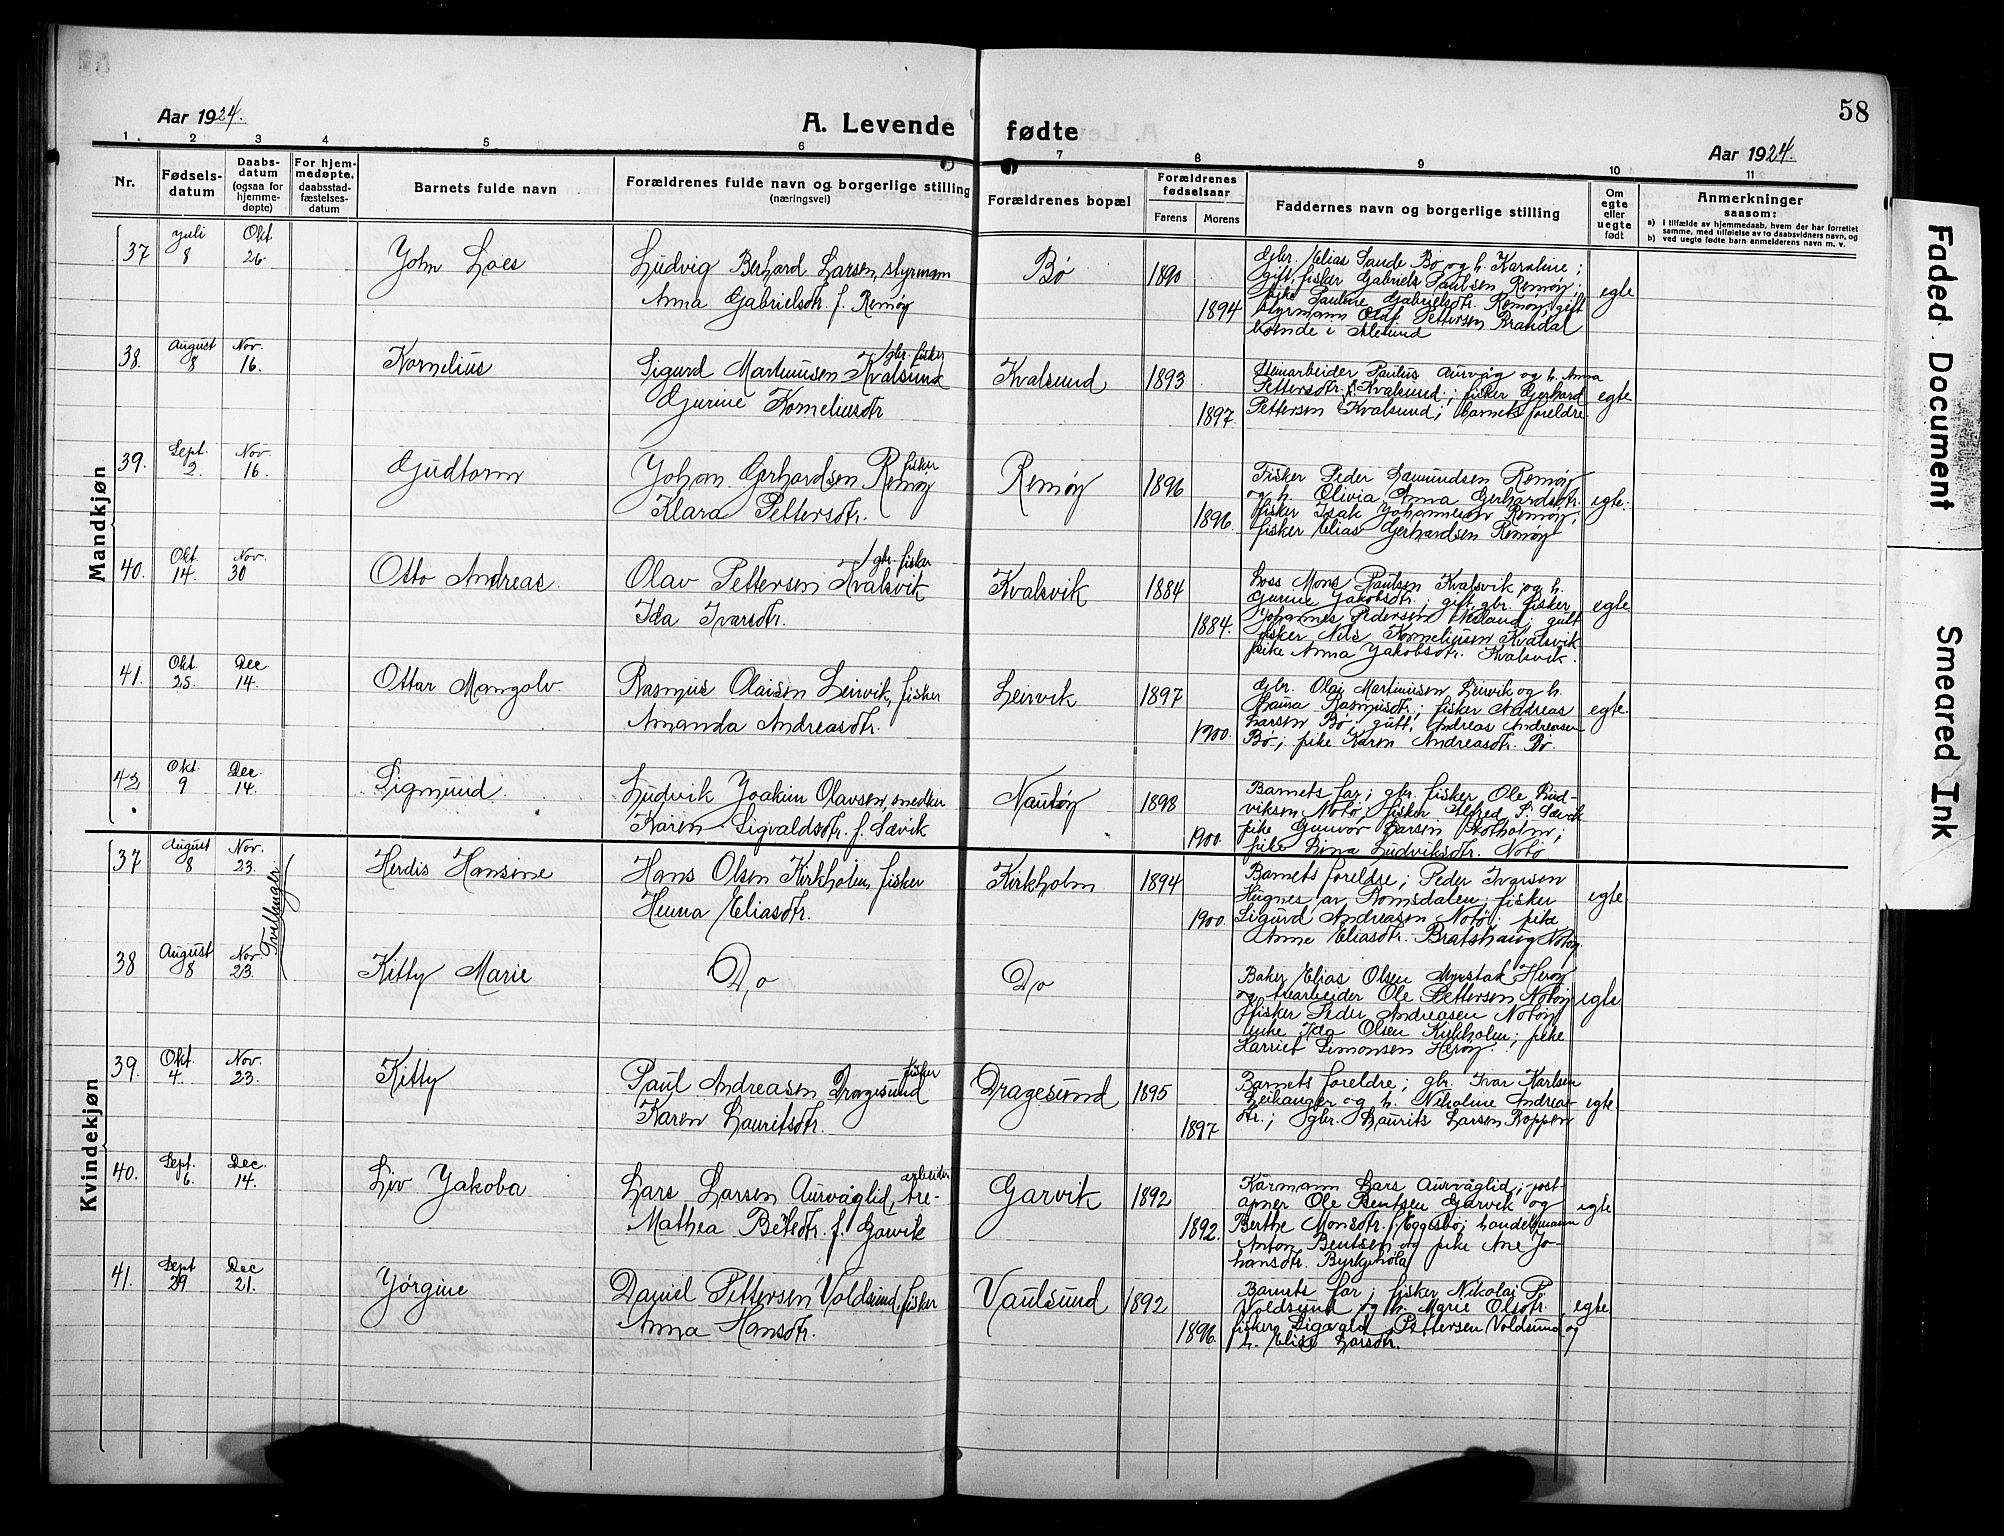 58
Aar 1924.
A. Levende fødte
Aar 1924.
1 2 3 4 5 6 7 8 9 10 11
Nr.
Fødselsdatum
Daabsdatum (ogsaa for hjemmedøpte)
For hjemmedøpte, daabsstadfæstelsesdatum
Barnets fulde navn
Forældrenes fulde navn og borgerlige stilling (næringsvei)
Forældrenes bopæl
Forældrenes fødselsaar
Farens Morens
Faddernes navn og borgerlige stilling
Om egte eller uegte født
Anmerkninger saasom:
a) I tilfælde av hjemmedaab, hvem der har forrettet samme, med tilføielse av to daabsvidners navn, og
b) ved uegte fødte barn anmelderens navn m. v.
Mandkjøn
37 Juli 8 Okt 26 John Loes
Ludvig Berhard Larsen, styrmann
Anna Gabrielsdtr. f. Remøy
Bø 1890 1894
Gbr. Elias Sande Bø og h. Karoline;
gift fisker Gabriel Paulsen Remøy;
pike Pauline Gabrielsdtr. Remøy; gift
styrmann Olaf Pettersen Brandal
boende i Ålesund
egte
38. August 8 Nov. 16. Kornelius
Sigurd Martinusen Kvalsund gbr. fisker
Gurine Korneliusdtr
Kvalsund 1893 1897.
Stenarbeider Paulus Aurvåg og h. Anna
Pettersdtr. f. Kvalsund; fisker Gerhard
Pettersen Kvalsund; barnets foreldre
egte
39. Sept. 2. Nov. 16. Gudtorm
Johan Gerhardsen Remøy fisker
Klara Pettersdtr.
Remøy 1896 1896.
Fisker Peder Samundsen Remøy
og h. Olivia Anna Gerhardsdtr.
fisker Isak Johannesen Remøy;
fisker Elias Gerhardsen Remøy
egte.
40. Okt 14. Nov. 30 Otto Andreas.
Olav Pettersen Kvalsvik gbr. fisker
Ida Ivarsdtr.
Kvalsvik 1884 1884.
Loss Mons Paulsen Kvalsvik og h.
Gurine Jakobsdtr.; gift. gbr. fisker
Johannes Pedersen Nesland; gutt
fisker Nils Korneliusen Kvalsvik
pike Anna Jakobsdtr. Kvalsvik.
egte.
41. Okt. 25. Dec. 14. Ottar Mangolv.
Rasmus Olaisen Leirvik, fisker
Amanda Andreasdtr.
Leirvik 1897 1900.
Gbr. Olai Martinusen Leirvik og h.
Laura Rasmusdtr.; fisker Andreas
Larsen Bø; gutt Andreas Andreasen
Bø; pike Karen Andreasdtr. Bø.
egte.
42 Okt. 9 Dec. 14. Sigmund.
Ludvik Joakim Olavsen, snedker
Karen Sigvaldsdtr. f. Sævik
Nautøy 1898 1900.
Barnets far; gbr. fisker Ole Lud-
viksen Notø; fisker Alfred P. Sævik
pike Gunvor Larsen Skotholm;
pike Lina Ludviksdtr. Notø
Kvindekjøn
Tvillinger
37 August 8 Nov. 23. Herdis Hansine
Hans Olsen Kirkholm, fisker
Henna Eliasdtr.
Kirkholm 1894 1900.
Barnets foreldre; Peder Ivarsen
Hugnes av Romsdalen; fisker
Sigurd Andreasen Notø; pike
Anne Eliasdtr. Bratshaug Notøy.
egte
38 August 8 Nov. 23. Kitty Marie
Do Do
Baker Elias Olsen Myrstad Herøy
og trearbeider Ole Pettersen Notøy
fisker Peder Andreasen Notøy
Ida Olsen Kirkholm; pike
Harriet Simonsen Herøy.
egte
39. Okt. 4. Nov. 23. Kitty
Paul Andreasen Dragesund fisker
Karen Lauritsdtr.
Dragesund 1895 1897
Barnets foreldre; gbr. Ivar Karlsen
Leikanger og h. Nikoline Andreas-
dtr.; gbr. Laurits Larsen Koppen
egte.
40. Sept. 6. Dec. 14. Liv Jakoba
Lars Larsen Aurvåglid, tre-
arbeider
Mathea Bentsdtr. f. Garvik
Garvik 1892 1892.
Kårmann Lars Aurvåglid; post-
åpner Ole Bentsen Garvik og
Berthe Monsdtr. f. Eggesbø; handelsmann
Anton Bentsen og pike Ane Jo-
hansdtr. Byrkjehola
egte
41. Sept 29 Dec 21. Jørgine
Daniel Pettersen Voldsund, fisker
Anna Hansdtr.
Vaulsund 1892 1896.
Barnets far; fisker Nikolai P.
Voldsund og h. Marie Olsdtr.
fisker Sigvald Pettersen Voldsund og
h. Elise Larsdtr.
egte
Faded Document
Smeared Ink